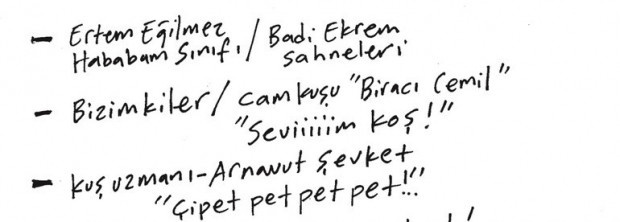 - Ertem Eğilmez
Hababam Sınıfı / Badi Ekrem
sahneleri
- Bizimkiler / camkuşu "Biracı Cemil"
"Seviiiiim koş!"
- kuş uzmanı-Arnavut Şevket
"Çipet pet pet pet!!"